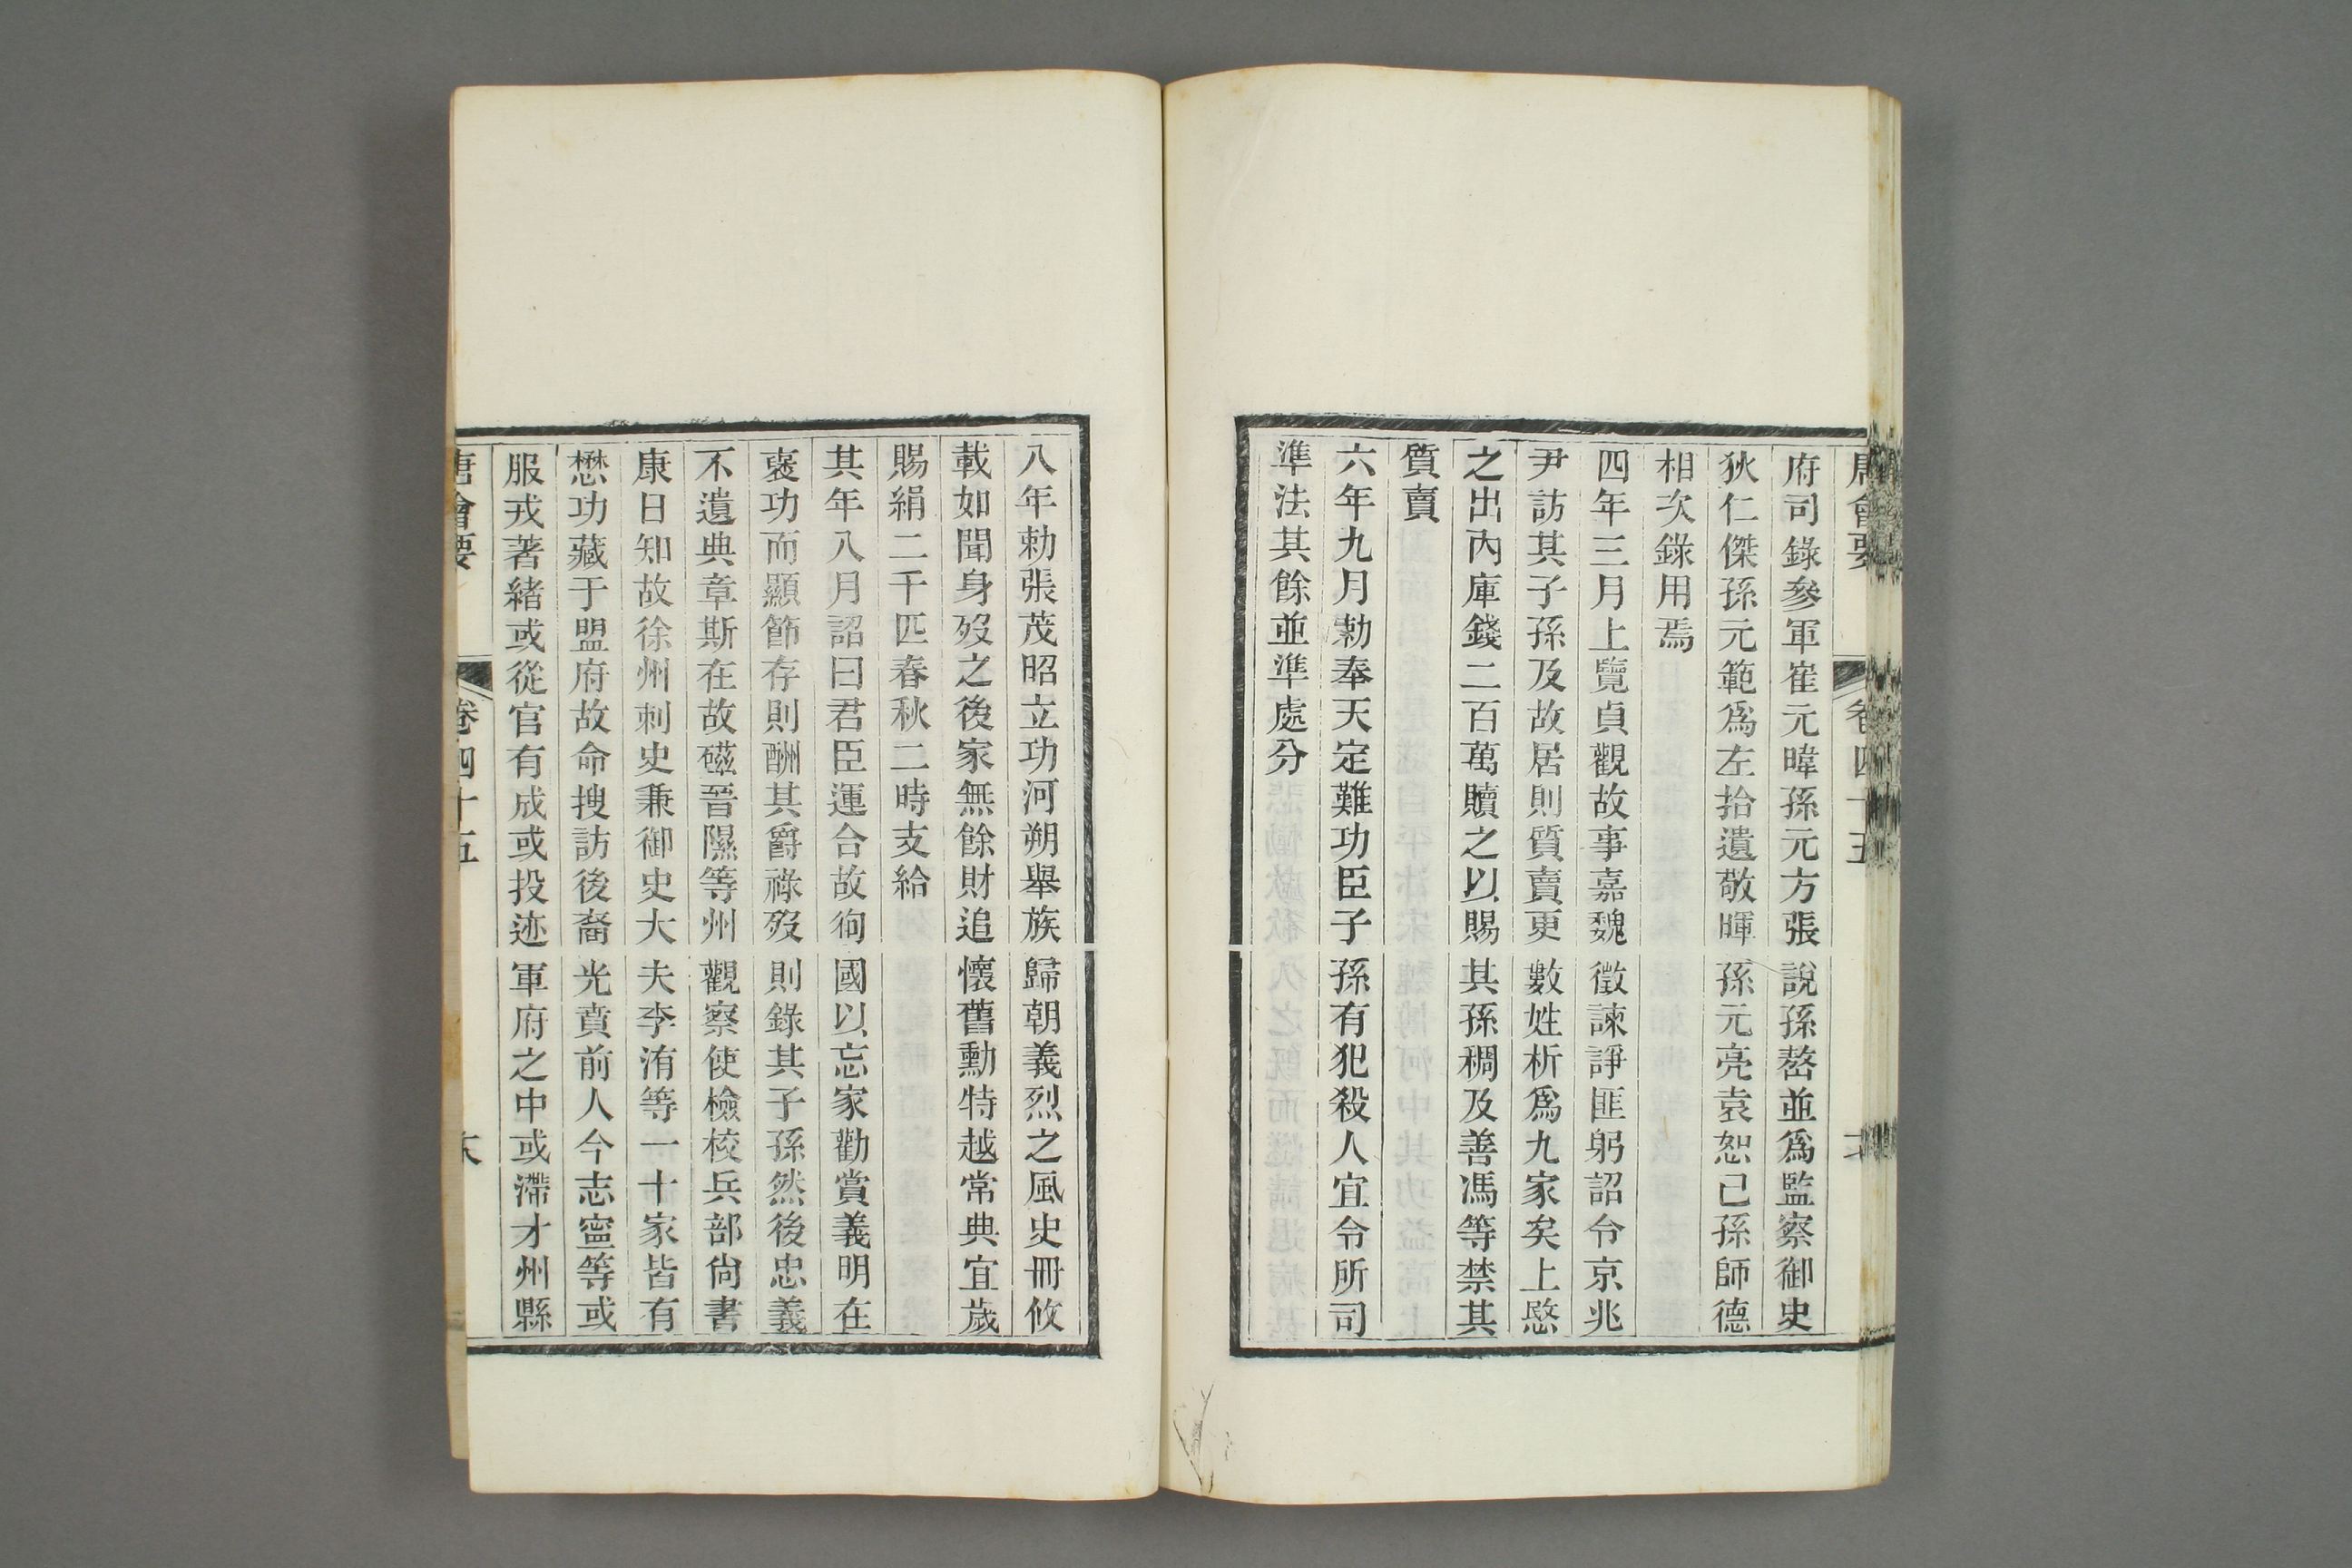 唐會要 卷四十五
府司錄參軍崔元暐孫元方張說孫嶅並爲監察御史
狄仁傑孫元範爲左拾遺敬暉孫元亮袁恕己孫師德
相次錄用焉
四年三月上覽貞觀故事嘉魏徵諫諍匪躬詔令京兆
尹訪其子孫及故居則質賣更數姓析爲九家矣上愍
之出內庫錢二百萬贖之以賜其孫稠及善馮等禁其
質賣
六年九月勅奉天定難功臣子孫有犯殺人宜令所司
準法其餘並準處分
八年勅張茂昭立功河朔舉族歸朝義烈之風史冊攸
載如聞身歿之後家無餘財追懷舊勳特越常典宜歲
賜絹二千匹春秋二時支給
其年八月詔曰君臣運合故徇國以忘家勸賞義明在
褒功而顯節存則酬其爵祿歿則錄其子孫然後忠義
不遺典章斯在故磁晉隰等州觀察使檢校兵部尙書
康日知故徐州刺史兼御史大夫李洧等一十家皆有
懋功藏于盟府故命搜訪後裔光賁前人今志寧等或
服戎著緒或從官有成或投迹軍府之中或滯才州縣
唐會要 卷四十五